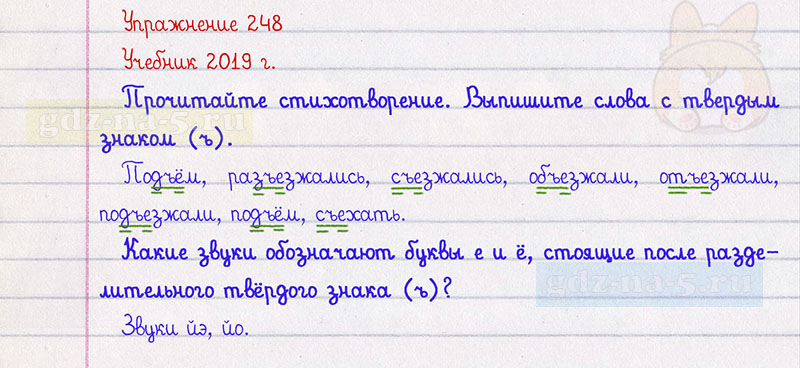 Упражнение 248
Учебник 2019 г.
Прочитайте стихотворение. Выпишите слова с твердым
знаком (ъ).
gdz-na-5.ru
Подъём, разъезжались, съезжались, объезжали, отъезжали,
подъезжали, подъём, съехать.
Какие звуки обозначают буквы е и ё, стоящие после разде-
лительного твёрдого знака (ъ)?
gdz-na-5.ru
Звуки йэ, йо.